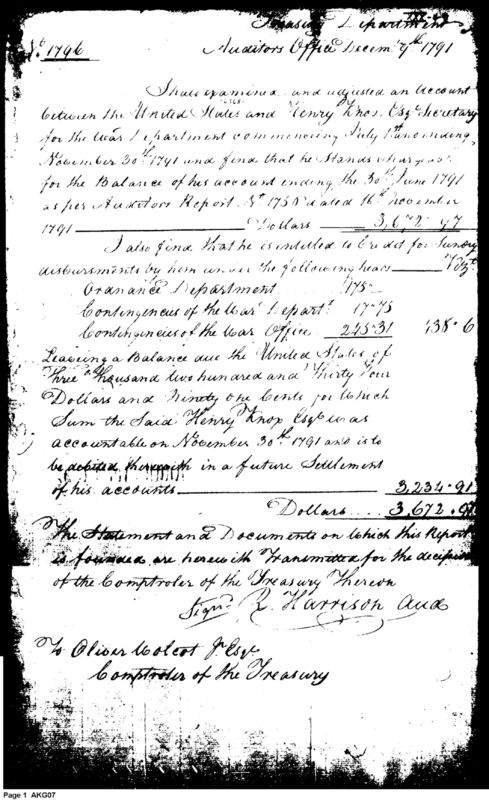 Treasury Department
No. 1796
Auditors Office Decem. 9th 1791
I have examined and adjusted an Account
between the United States and Henry Knox Esqr. Secretary
for the War Department commencing July 1st and ending
November 30th 1791 and find that he Stands chargeable
for the Balance of his account ending the 30th June 1791
as per Auditors Report No. 1738 dated 16th November
1791 Dollars 3,672.97
I also find that he is entitled to Credit for Sundry
disbursments by him under the following heads Vizt.
Ordnance Department 175
Contingencies of the War Departt. 17.75
Contingencies of the War Office 245.31 438.6
Leaving a Balance due the United States of
Three Thousand two hundred and Thirty four
Dollars and Ninety one Cents for Which
Sum the Said Henry Knox Esqr. was
accountable on November 30th 1791 and is to
be debited therewith in a future Settlement
of his accounts 3,234.91
Dollars 3,672.97
The Statement and Documents on Which this Report
is founded are herewith Transmitted for the decision
of the Comptroler of the Treasury Thereon
Signd. R. Harrison Aud
To Oliver Wolcot Jr. Esqr.
Comptroler of the Treasury
Page 1 AKG07